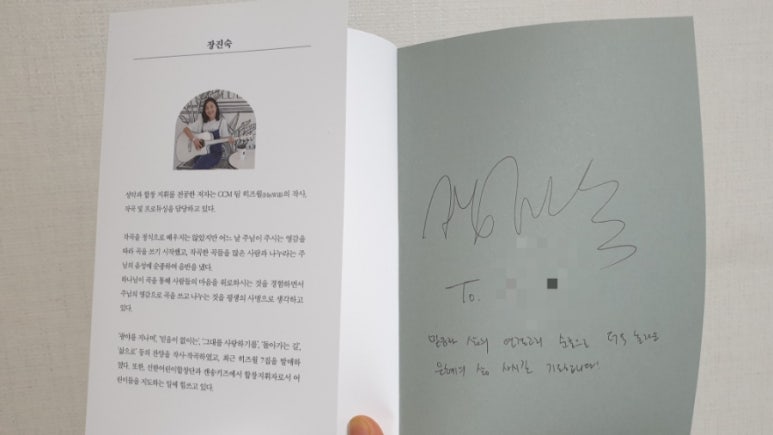 장진숙
성악과 합창 지휘를 전공한 저자는 CCM 팀 히즈윌(his will)의 작사,
작곡 및 프로듀싱을 담당하고 있다.
작곡을 정식으로 배우지는 않았지만 어느 날 주님이 주시는 영감을
따라 곡을 쓰기 시작했고, 작곡한 곡들을 많은 사람과 나누라는 주
님의 음성에 순종하여 음반을 냈다.
하나님이 곡을 통해 사람들의 마음을 위로하시는 것을 경험하면서
주님의 영감으로 곡을 쓰고 나누는 것을 평생의 사명으로 생각하고
있다.
'광야를 지나며', '믿음이 없이는', '그대를 사랑하기를', '돌아가는 길',
'삶으로' 등의 찬양을 작사·작곡하였고, 최근 히즈윌 7집을 발매하
였다. 또한, 선한어린이합창단과 캔송키즈에서 합창지휘자로서 어
린이들을 지도하는 일에 힘쓰고 있다.
To.
말씀과 삶의 순종으로 더욱 놀라운
은혜의 삶 사시길 기도합니다